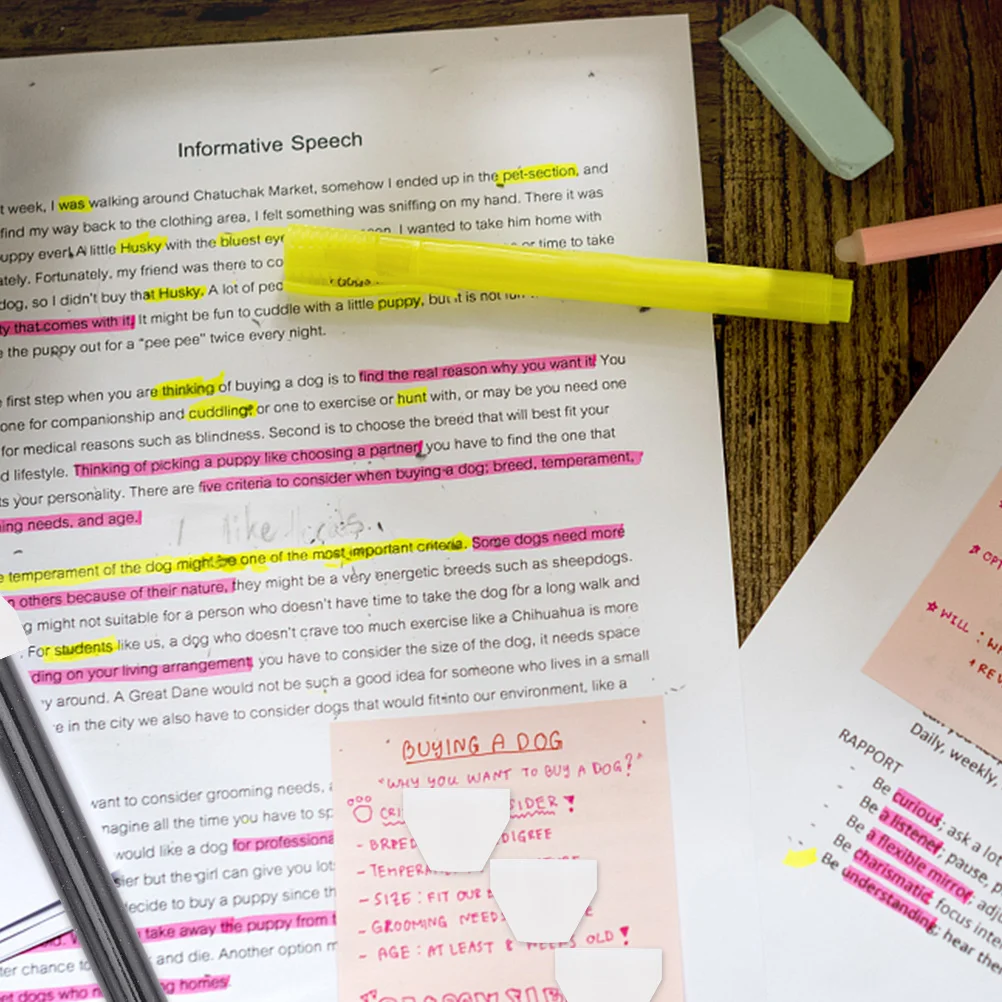 Informative Speech
t week, I was walking around Chatuchak Market, somehow I ended up in the pet-section, and
find my way back to the clothing area, I felt something was sniffing on my hand. There it was
uppy ever! A little Husky with the bluest eye I wanted to take him home with
ately. Fortunately, my friend was there to co or time to take
dog, so I didn't buy that Husky. A lot of peo
ty that comes with it. It might be fun to cuddle with a little puppy, but it is not fun
e the puppy out for a "pee pee" twice every night.
e first step when you are thinking of buying a dog is to find the real reason why you want it! You
one for companionship and cuddling, or one to exercise or hunt with, or may be you need one
for medical reasons such as blindness. Second is to choose the breed that will best fit your
d lifestyle. Thinking of picking a puppy like choosing a partner, you have to find the one that
ts your personality. There are five criteria to consider when buying a dog; breed, temperament,
ing needs, and age.
I like
e temperament of the dog might be one of the most important criteria. Some dogs need more
n others because of their nature, they might be a very energetic breeds such as sheepdogs.
g might not suitable for a person who doesn't have time to take the dog for a long walk and
. For students like us, a dog who doesn't crave too much exercise like a Chihuahua is more
ding on your living arrangement, you have to consider the size of the dog, it needs space
y around. A Great Dane would not be such a good idea for someone who lives in a small
e in the city we also have to consider dogs that would fit into our environment, like a
want to consider grooming needs, a
nagine all the time you have to sp
would like a dog for professiona
sier but the girl can give you lots
decide to buy a puppy since th
take away the puppy from t
ter chance to and die. Another option m
et dogs who n ng homes.
BUYING A DOG
"WHY YOU WANT TO BUY A DOG?"
CRI SIDER!
- BREED DIGREE
- TEMPERA TURE
- SIZE: FIT OUR E
- GROOMING NEEDS e
- AGE: AT LEAST 8 WEEKS OLD!
OPT
WILL: WH
+ REV
Daily, weekly,
RAPPORT
- Be curious; ask a lo
- Be a listener; pause, p
- Be a flexible mirror; adj
- Be charismatic; focus inte
- Be understanding; hear the